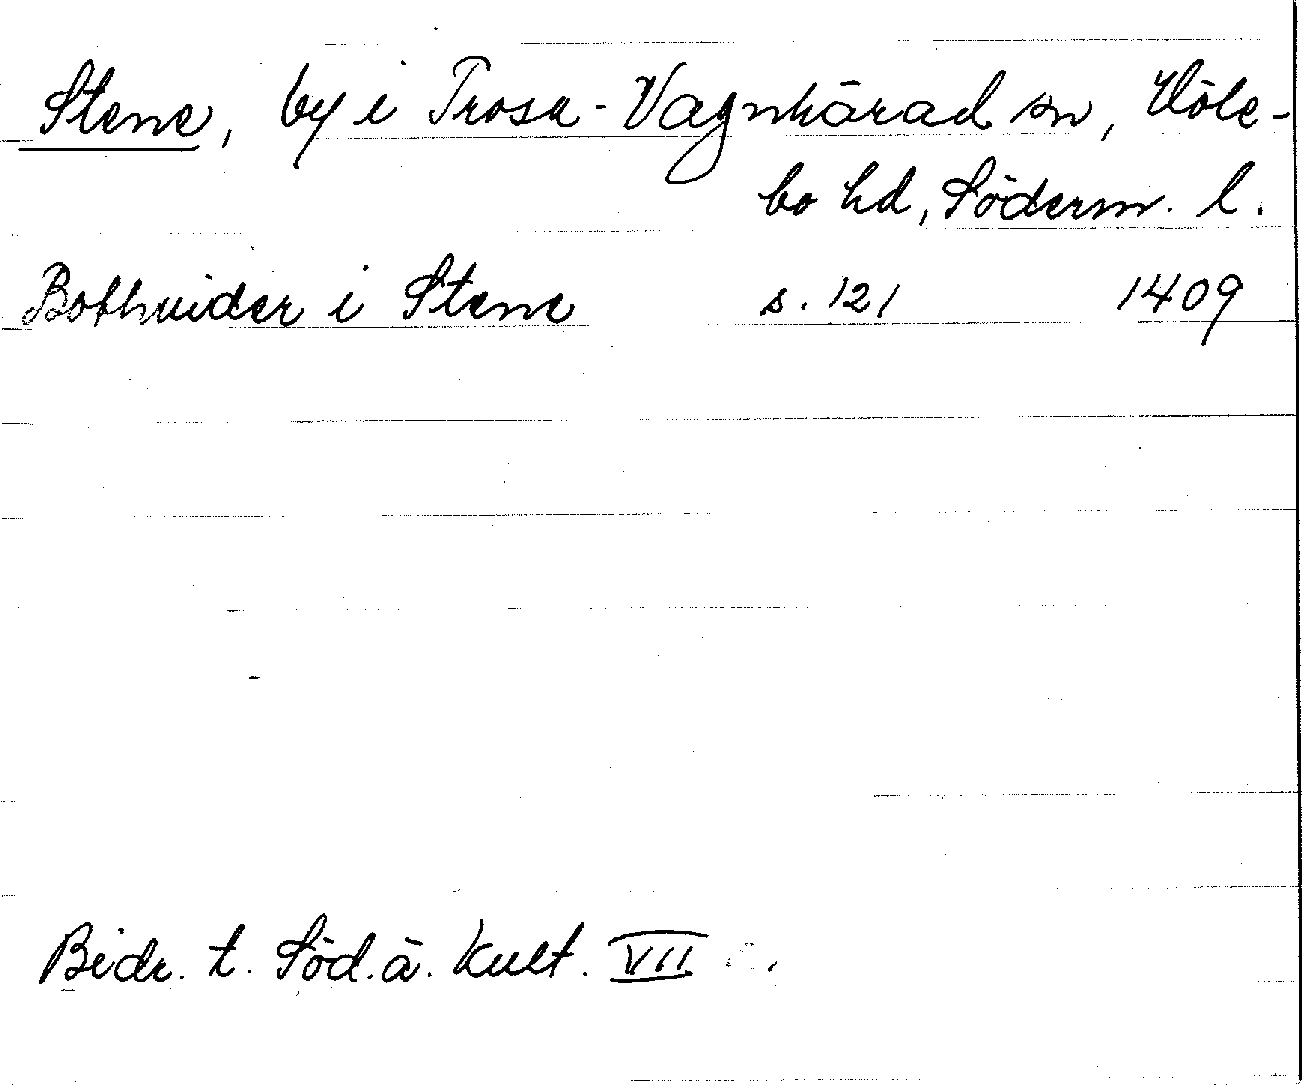 Stene, by i Trosa-Vagnhärad sn, Höle-
bo hd, Söderm. l.
Bothuider i Stene s. 121 1409
Bidr. t. Söd. ä. Kult. VII